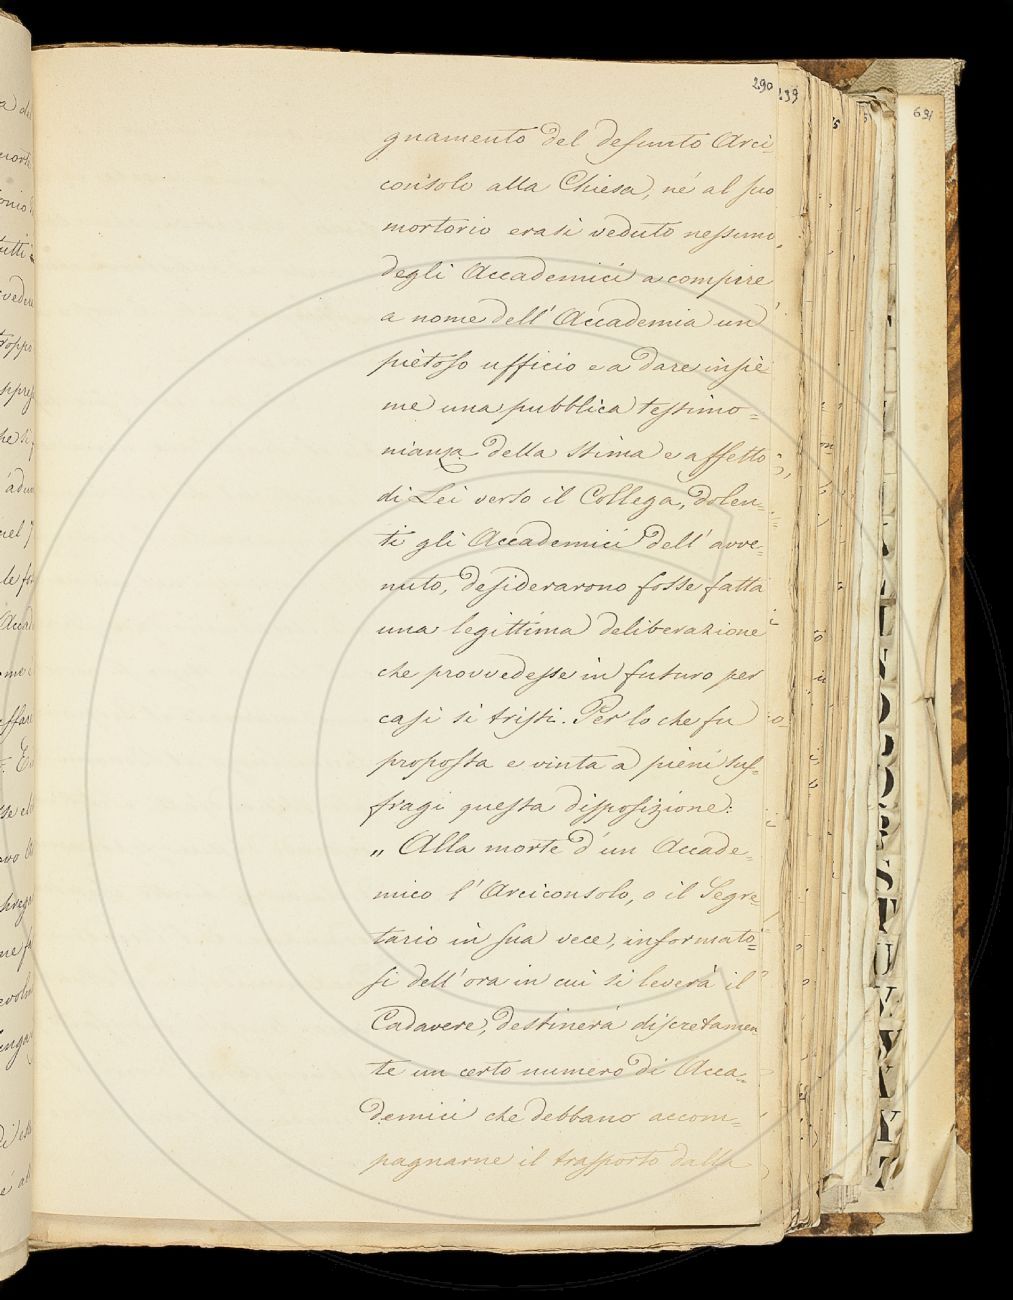 290
239
691
gnamento del defunto Arci-
consolo alla Chiesa, né al suo
mortorio erasi veduto nessuno
degli Accademici a compire
a nome dell'Accademia un
pietoso ufficio e a dare insie
me una pubblica testimo=
nianza della stima e affetto
di Lei verso il Collega, dolen=
ti gli Accademici dell'avve=
nuto, desiderarono fosse fatta
una legittima deliberazione
che provvedesse in futuro per
casi sì tristi. Per lo che fu
proposta e vinta a pieni suf=
fragi questa disposizione:
„ Alla morte d'un Accade=
mico l'Arciconsolo, o il Segre=
tario in sua vece, informato=
si dell'ora in cui si leverà il
Cadavere, destinerà discretamen
te un certo numero di Acca=
demici che debbano accom=
pagnarne il trasporto dalla